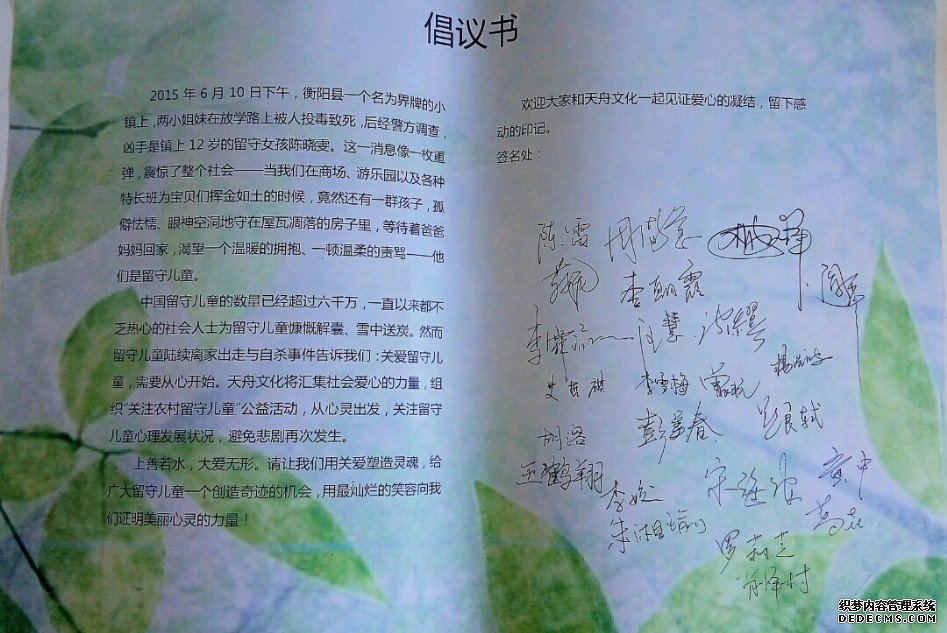 倡议书
2015 年 6 月 10 日下午，衡阳县一个名为界牌的小
镇上，两小姐妹在放学路上被人投毒致死，后经警方调查，
凶手是镇上 12 岁的留守女孩陈晓雯。这一消息像一枚重
弹，震惊了整个社会——当我们在商场、游乐园以及各种
特长班为宝贝们挥金如土的时候，竟然还有一群孩子，孤
僻怯懦、眼神空洞地守在屋瓦凋落的房子里，等待着爸爸
妈妈回家，渴望一个温暖的拥抱、一顿温柔的责骂——他
们是留守儿童。
中国留守儿童的数量已经超过六千万，一直以来都不
乏热心的社会人士为留守儿童慷慨解囊、雪中送炭。然而
留守儿童陆续离家出走与自杀事件告诉我们：关爱留守儿
童，需要从心开始。天舟文化将汇集社会爱心的力量，组
织“关注农村留守儿童”公益活动，从心灵出发，关注留守
儿童心理发展状况，避免悲剧再次发生。
上善若水，大爱无形。请让我们用关爱塑造灵魂，给
广大留守儿童一个创造奇迹的机会，用最灿烂的笑容向我
们证明美丽心灵的力量！
欢迎大家和天舟文化一起见证爱心的凝结，留下感
动的印记。
签名处：
陈雷
李朝霞
李雪梅
彭美春
王鹤翔
罗莉芝
织梦内容管理系统
DEDECMS.COM